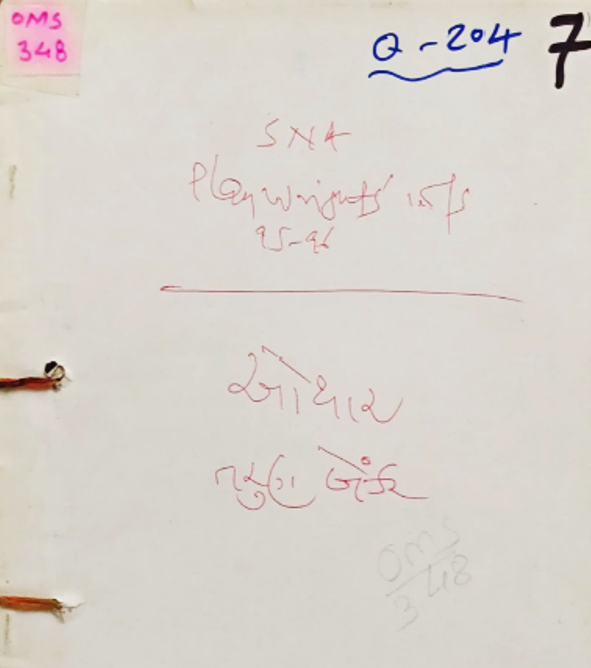 OMS
348
Q-204
7
SNA
Playwrights' W/S
95-96
ઓથાર
તરુણ બેંકર
OMS
348